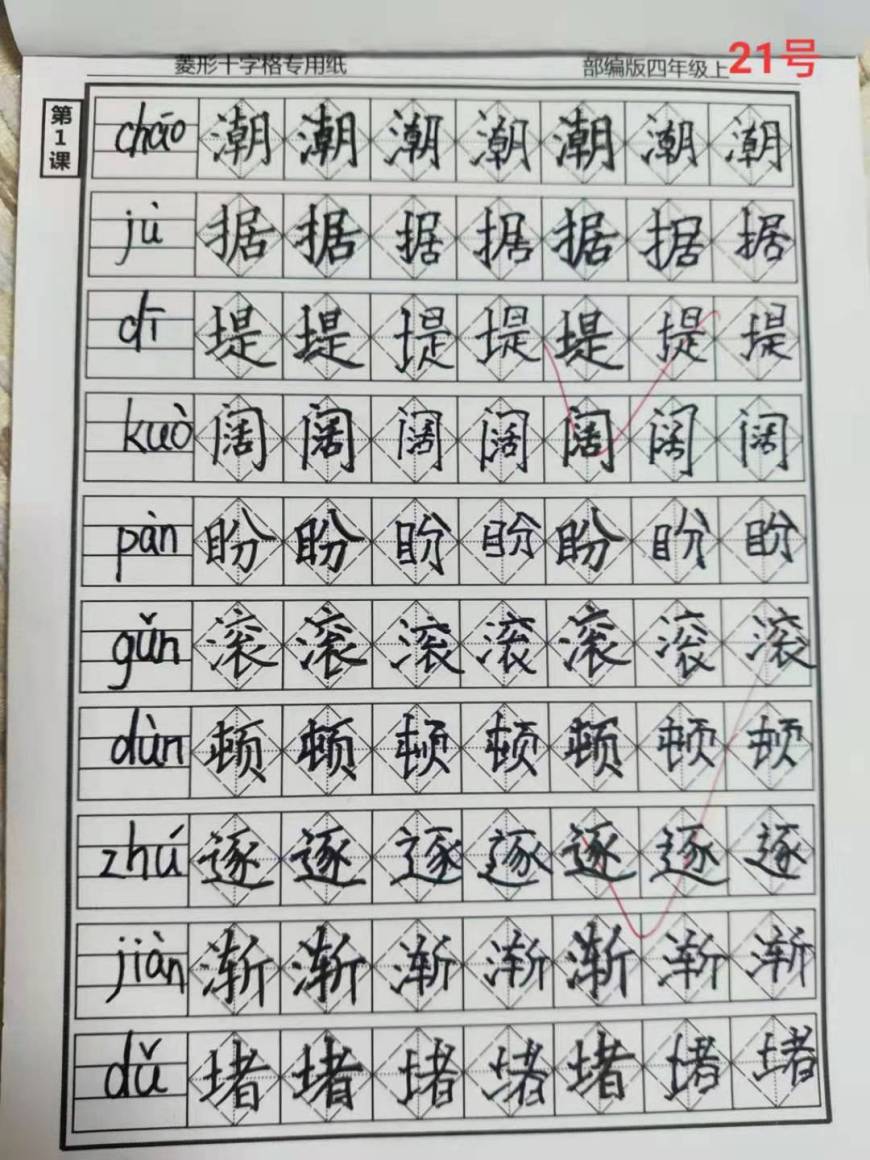 菱形十字格专用纸 部编版四年级上 21号
第1课
cháo 潮 潮 潮 潮 潮 潮 潮
jù 据 据 据 据 据 据 据
dī 堤 堤 堤 堤 堤 堤 堤
kuò 阔 阔 阔 阔 阔 阔 阔
pàn 盼 盼 盼 盼 盼 盼 盼
gǔn 滚 滚 滚 滚 滚 滚 滚
dùn 顿 顿 顿 顿 顿 顿 顿
zhú 逐 逐 逐 逐 逐 逐 逐
jiàn 渐 渐 渐 渐 渐 渐 渐
dǔ 堵 堵 堵 堵 堵 堵 堵